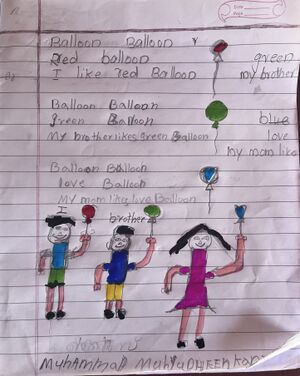 Date
Page
Balloon Balloon
Red balloon green
I like red Balloon my brother
Balloon Balloon
green Balloon blue
My brother likes green Balloon love
my mom like
Balloon Balloon
love Balloon
My mom like love Balloon
I brother
Muhammad